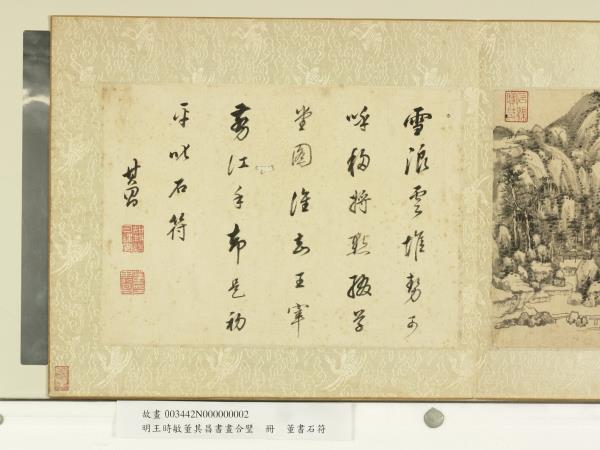 雪浪雲堆勢可
呼移將點綴草
堂圖誰知王宰
剪江手却是初
平叱石符
其昌
故畫 003442N000000002
明王時敏董其昌書畫合璧 冊 董書石符